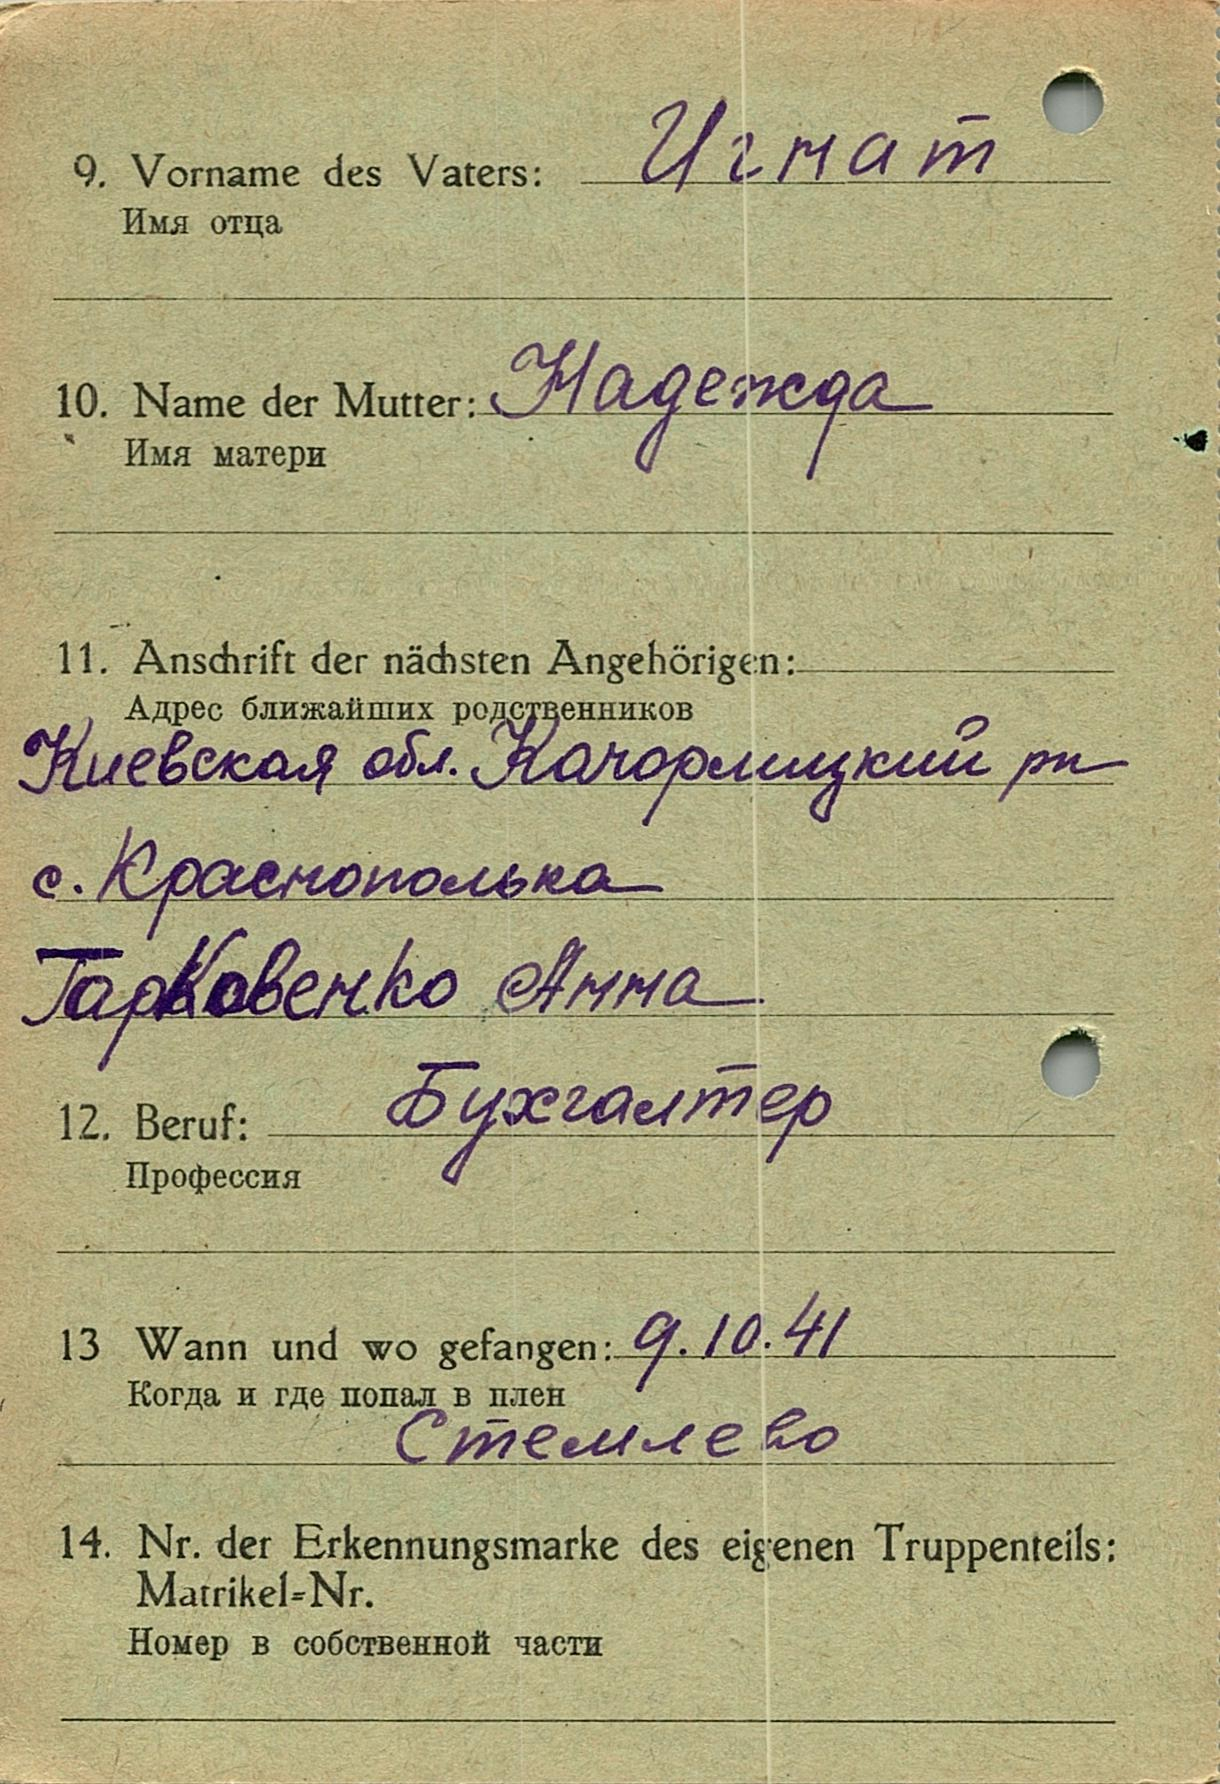 9. Vorname des Vaters: Игнат
Имя отца
10. Name der Mutter: Надежда
Имя матери
11. Anschrift der nächsten Angehörigen:
Адрес ближайших родственников
Киевская обл. Качорлицкий рн
с. Краснополька
Гарковенко Анна
12. Beruf: Бухгалтер
Профессия
13 Wann und wo gefangen: 9.10.41
Когда и где попал в плен
Стемлево
14. Nr. der Erkennungsmarke des eigenen Truppenteils:
Matrikel=Nr.
Номер в собственной части